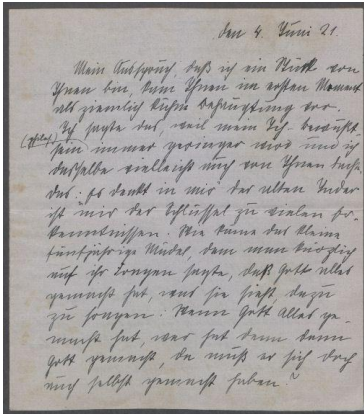 den 4. Juni 21.
Mein Ausspruch, daß ich ein Stück von
Ihnen bin, kam Ihnen im ersten Moment
als ziemlich kühne Behauptung vor.
Ich sagte das, weil mein Ich-bewußt-
sein immer geringer wird und ich
dasselbe vielleicht auch von Ihnen denke.
Das: Es denkt in mir der alten Inder
ist mir der Schlüssel zu vielen Er-
kenntnissen. Wie kam das kleine
fünfjährige Mädel, dem man kürzlich
auf ihr Fragen sagte, daß Gott alles
gemacht hat, was sie sieht, dazu
zu fragen: Wenn Gott alles ge-
macht hat, wer hat denn dann
Gott gemacht, da muß er sich doch
auch selbst gemacht haben?